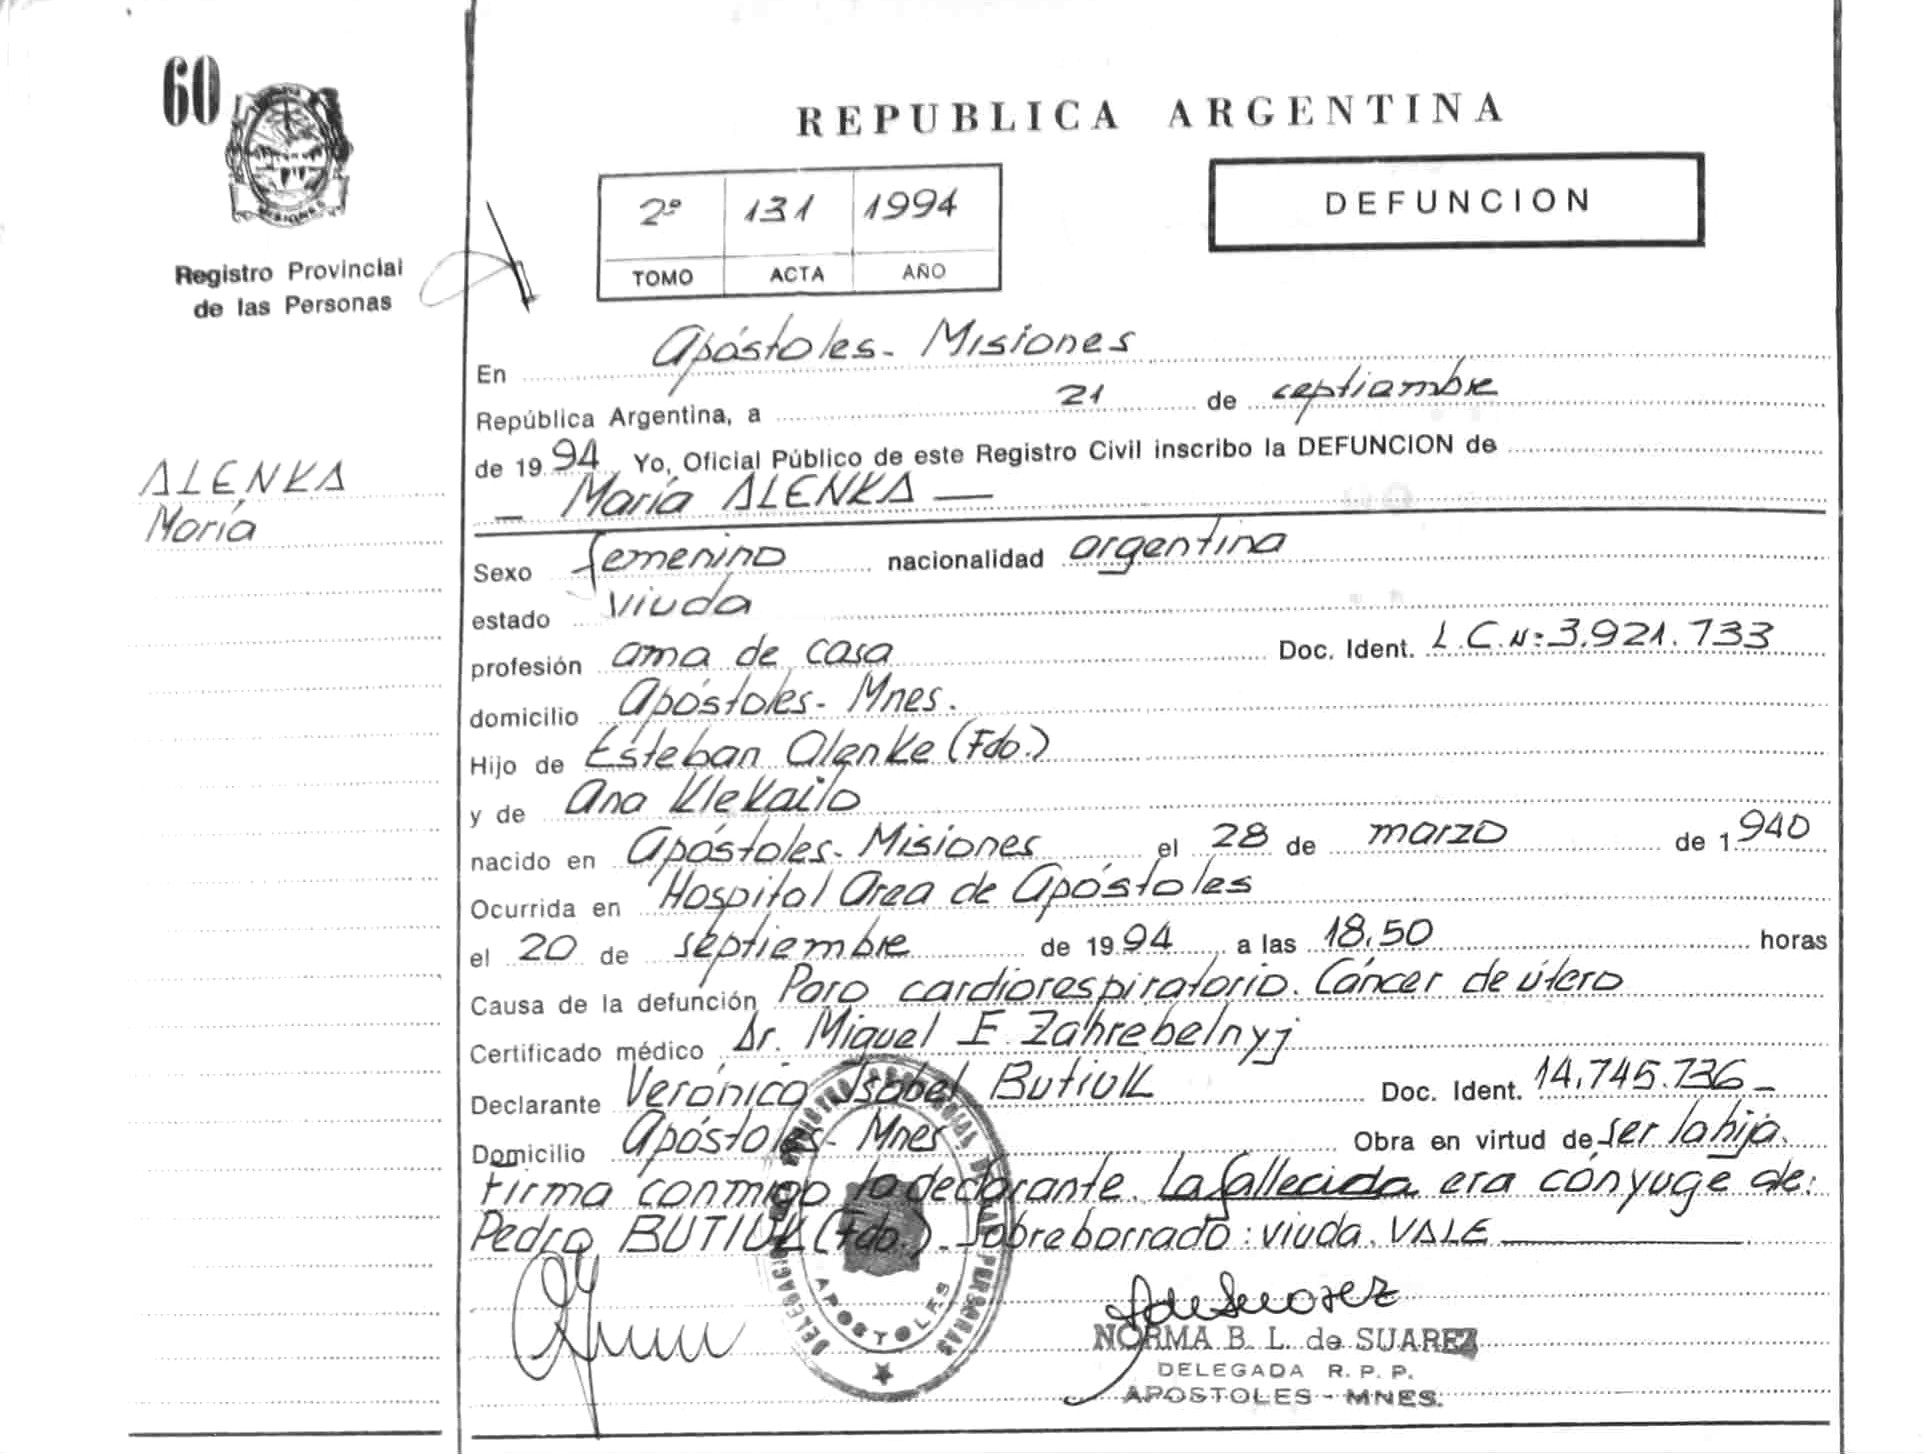 60
MISIONES
Registro Provincial
de las Personas
ALENKA
María
REPUBLICA ARGENTINA
2º 131 1994
TOMO ACTA AÑO
DEFUNCION
En Apóstoles - Misiones
República Argentina, a 21 de septiembre
de 1994 Yo, Oficial Público de este Registro Civil inscribo la DEFUNCION de
— María ALENKA —
Sexo femenino nacionalidad argentina
estado viuda
profesión ama de casa Doc. Ident. L.C.N: 3.921.733
domicilio Apóstoles - Mnes.
Hijo de Esteban Olenke (Fdo.)
y de Ana Klekailo
nacido en Apóstoles - Misiones el 28 de marzo de 1940
Ocurrida en Hospital Area de Apóstoles
el 20 de septiembre de 1994 a las 18,50 horas
Causa de la defunción Paro cardiorespiratorio. Cáncer de útero
Certificado médico Dr. Miguel E. Zahrebelnyj
Declarante Verónica Isabel Butiuk Doc. Ident. 14.745.736 -
Domicilio Apóstoles - Mnes Obra en virtud de ser la hija.
Firma conmigo la declarante. La fallecida era cónyuge de:
Pedro BUTIUK (Fdo.). Sobreborrado: viuda. VALE
APOSTOLES
NORMA B. L. de SUAREZ
DELEGADA R. P. P.
APOSTOLES - MNES.